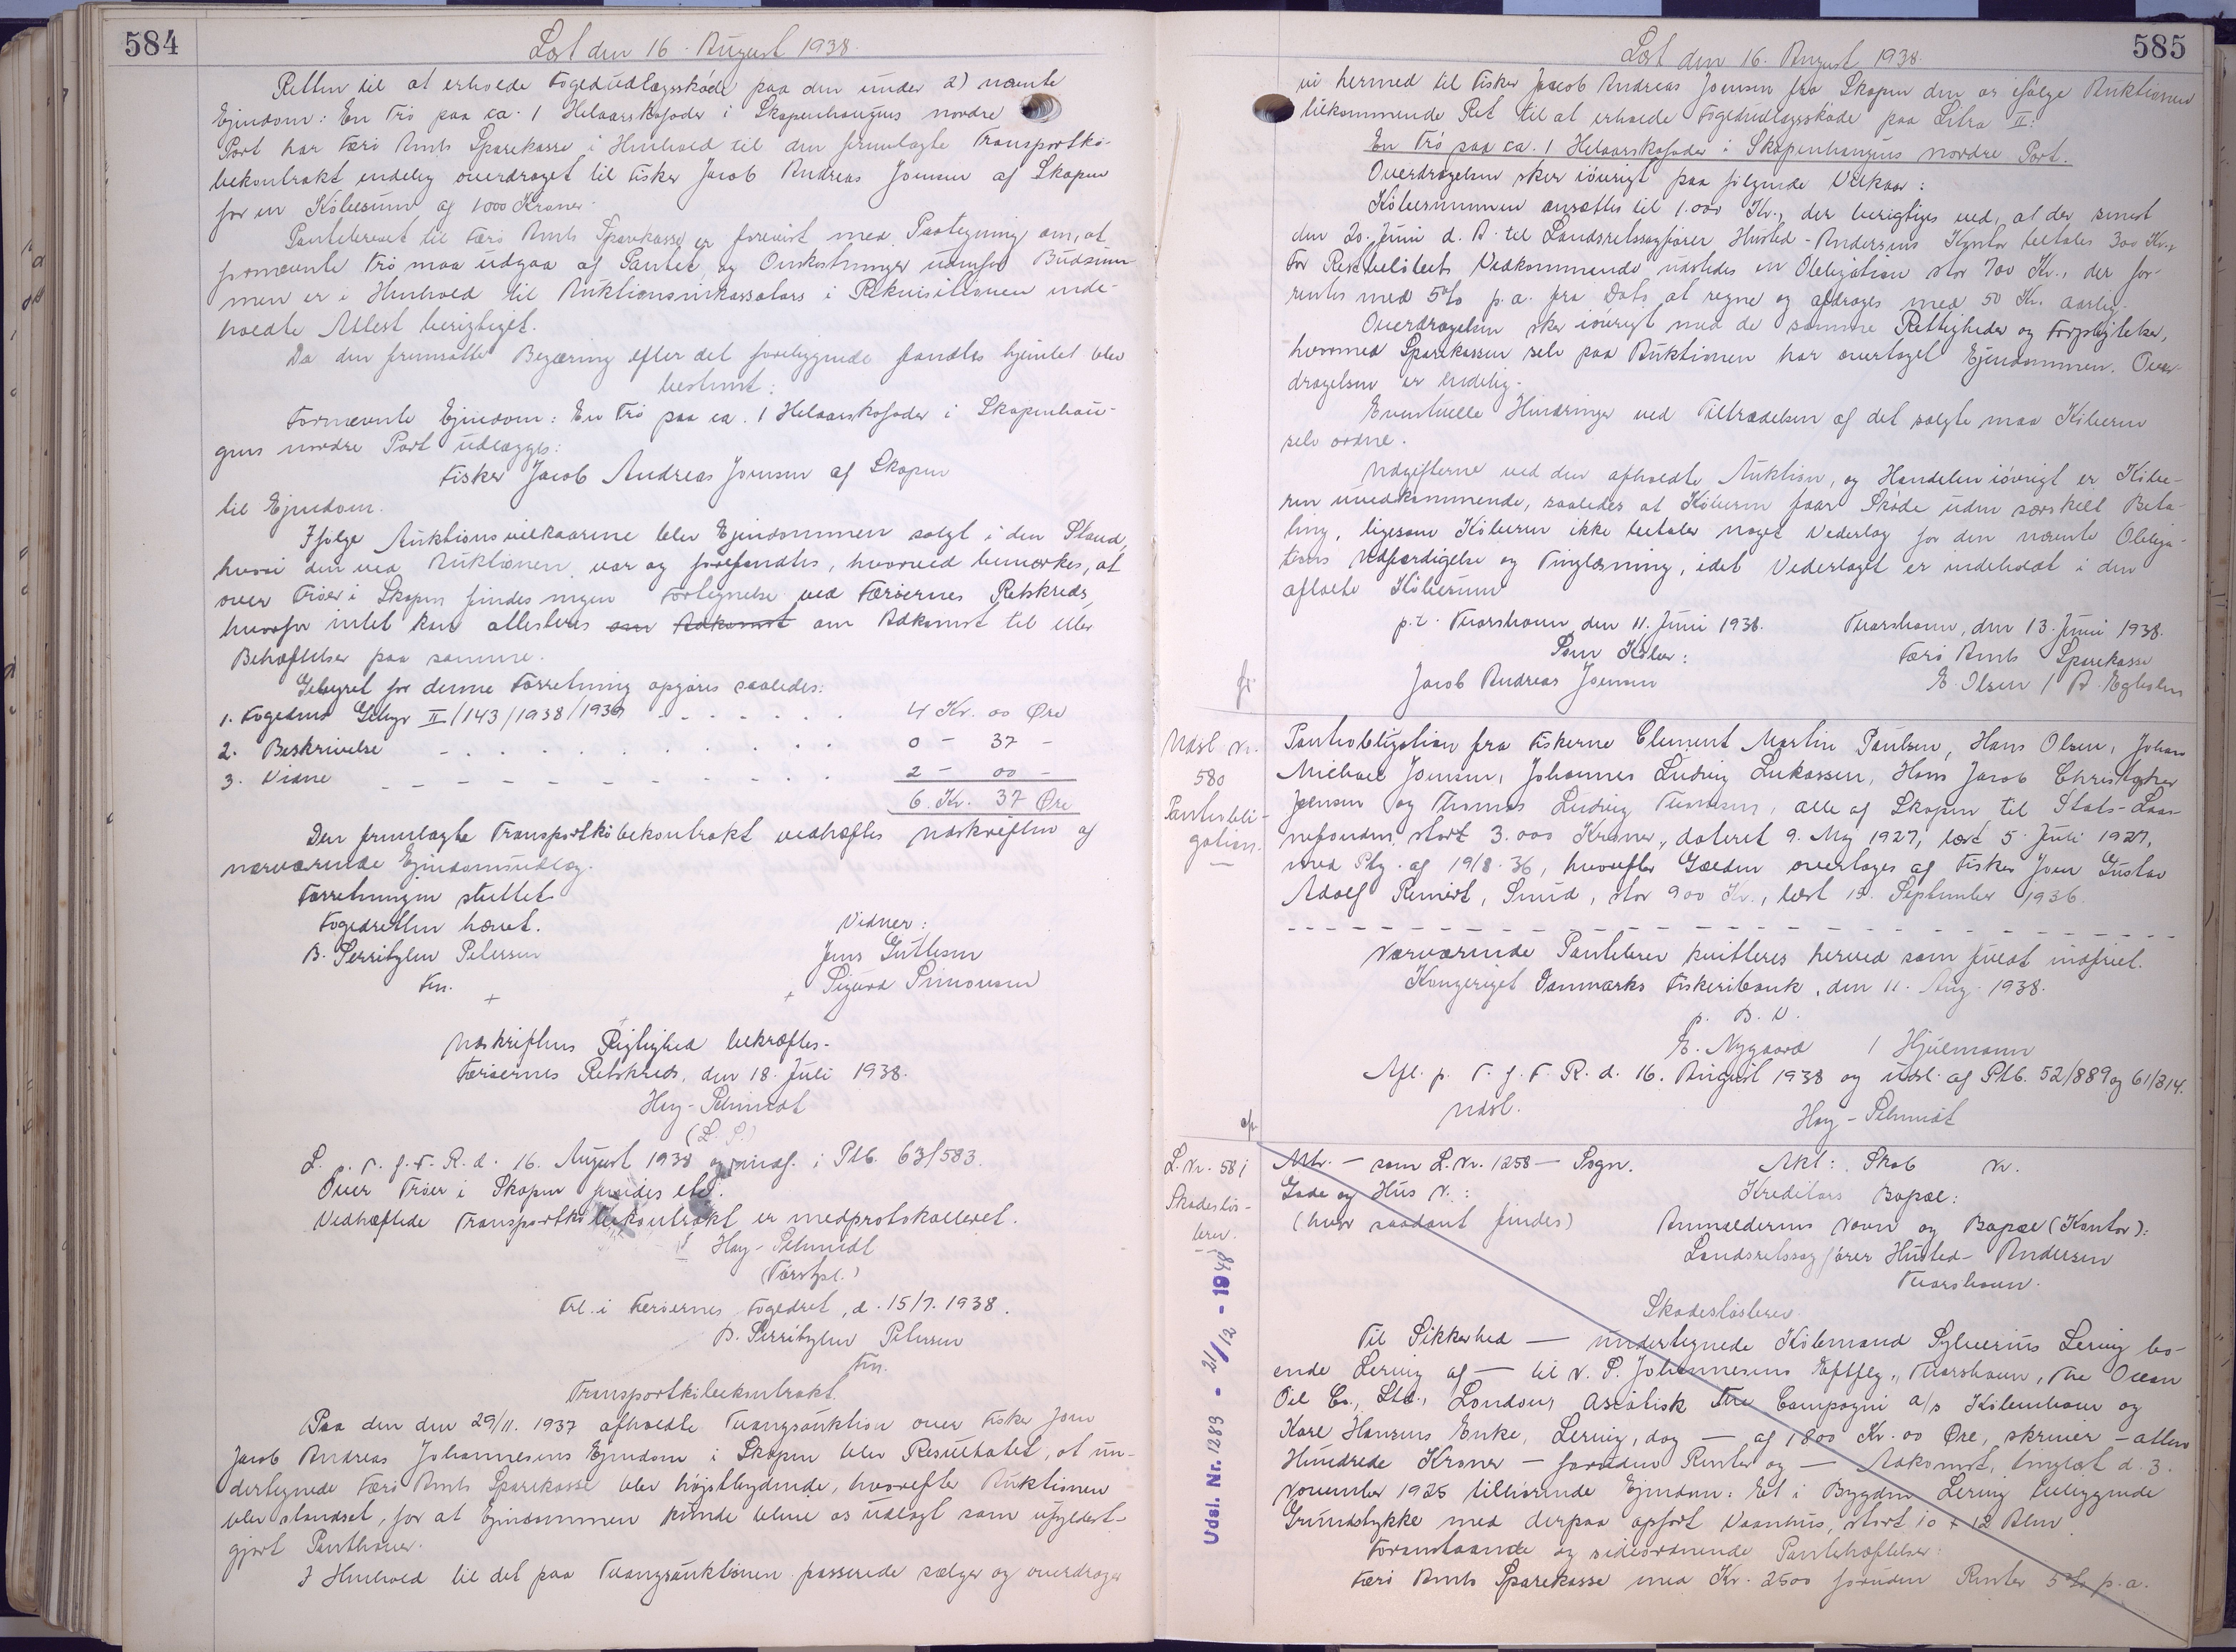 584
Læst den 16. August 1938.
Retten til at erholde Fogedudlægsskøde paa den under 2) nævnte
Ejendom: En Trø paa ca. 1 Helaarskofoder i Skopenhaugens nordre
Part har Færø Amts Sparekasse i Henhold til den fremlagte Transportkø-
bekontrakt endelig overdraget til Fisker Jacob Andreas Joensen af Skopen
for en Købesum af 1000 Kroner.
Pantebrevet til Færø Amts Sparekasse er forevist med Paategning om, at
fornævnte Trø maa udgaa af Pantet, og Omkostninger udenfor Budsum-
men er i Henhold til Auktionsinkassators i Rekvisitionen inde-
holdte Attest berigtiget.
Da den fremsatte Begæring efter det foreliggende fandtes hjemlet blev
bestemt:
Fornævnte Ejendom: En Trø paa ca. 1 Helaarskofoder i Skopenhau-
gens nordre Part udlægges:
Fisker Jacob Andreas Joensen af Skopen
til Ejendom.
Ifølge Auktionsvilkaarene blev Ejendommen solgt i den Stand,
hvori den ved Auktionen var og forefandtes, hvorved bemærkes, at
over Trøer i Skopen findes ingen Fortegnelse ved Færøernes Retskreds,
hvorfor intet kan attesteres om Adkomst om Adkomst til eller
Behæftelser paa samme.
Gebyret for denne Forretning opgøres saaledes:
1. Fogedens Gebyr II/143/1938/1939 - - - - - - 4 Kr. 00 Øre
2. Beskrivelse - - - - - - - - 0 - 37 -
3. Vidne - - - - - - - - 2 - 00 -
6 Kr. 37 Øre
Den fremlagte Transportkøbekontrakt vedhæftes Udskriften af
nærværende Ejendomsudlæg.
Forretningen sluttet.
Fogedretten hævet.
Vidner:
B. Serritzlew Petersen
Jens Guttesen
Fm.
Sigurd Simonsen
Udskriftens Rigtighed bekræftes.
Færøernes Retskreds, den 18. Juli 1938.
Hay-Schmidt
(L. S.)
L. p. T. f. F. R. d. 16. August 1938 og indf. i Ptb. 63/583.
Over Trøer i Skopen findes etc.
Vedhæftede Transportkøbekontrakt er medprotokolleret.
Hay-Schmidt
Frl. i Færøernes Fogedret, d. 15/7. 1938.
B. Serritzlew Petersen
Fm.
Transportkøbekontrakt.
Paa den den 29/11. 1937 afholdte Tvangsauktion over Fisker Joen
Jacob Andreas Johannesens Ejendom i Skopen blev Resultatet, at un-
dertegnede Færø Amts Sparekasse blev højstbydende, hvorefter Auktionen
blev standset, for at Ejendommen kunde blive os udlagt som ufyldest-
gjort Panthaver.
I Henhold til det paa Tvangsauktionen passerede sælger og overdrager
585
Læst den 16. August 1938.
vi hermed til Fisker Jacob Andreas Joensen fra Skopen den os ifølge Auktionen
tilkommende Ret til at erholde Fogedudlægsskøde paa Litra II:
En Trø paa ca. 1 Helaarskofoder i Skopenhaugens nordre Part.
Overdragelsen sker iøvrigt paa følgende Vilkaar:
Købesummen ansættes til 1.000 Kr., der berigtiges ved, at der senest
den 20. Juni d. A. til Landsretssagfører Husted-Andersens Kontor betales 300 Kr.,
For Restbeløbets Vedkommende udstedes en Obligation stor 700 Kr., der for-
rentes med 5% p.a. fra Dato at regne og afdrages med 50 Kr. aarlig.
Overdragelsen sker iøvrigt med de samme Rettigheder og Forpligtelser,
hvormed Sparekassen selv paa Auktionen har overtaget Ejendommen. Over-
dragelsen er endelig.
Eventuelle Hindringer ved Tiltrædelsen af det solgte maa Køberen
selv ordne.
Udgifterne ved den afholdte Auktion, og Handelen iøvrigt er Købe-
ren uvedkommende, saaledes at Køberen faar Skøde uden særskilt Beta-
ling, ligesom Køberen ikke betaler noget Vederlag for den nævnte Obliga-
tions Udfærdigelse og Tinglæsning, idet Vederlaget er indeholdt i den
aftalte Købesum
p.t. Thorshavn, den 11. Juni 1938. Thorshavn, den 13. Juni 1938.
Som Køber: Færø Amts Sparekasse
Jacob Andreas Joensen E. Olsen / A. Egholm
Udsl Nr.
580
Pantobli-
gation.
Pantobligation fra Fiskerne Clement Martin Poulsen, Hans Olsen, Johan
Michael Joensen, Johannes Ludvig Lukassen, Hans Jacob Christopher
Joensen og Thomas Ludvig Thomsen, alle af Skopen, til Stats-Laa-
nefonden stort 3.000 Kroner, dateret 9. Maj 1927, læst 5. Juli 1927,
med Ptg. af 19/8. 36, hvorefter Gælden overtages af Fisker Joen Gustav
Adolf Reinert, Sund, stor 900 Kr., læst 15. September 1936.
Nærværende Pantebrev kvitteres herved som fuldt indfriet.
Kongeriget Danmarks Fiskeribank, den 11. Aug. 1938.
p. B. V.
E. Nygaard / Hjulmann
Afl. p. T. f. F. R. d. 16. August 1938 og udsl. af Ptb. 52/889 og 61/814.
Udsl. Hay-Schmidt
L. Nr. 581
Skadesløs-
brev.
Udsl. Nr. 1289 - 21/12 - 1948
Mtr. — som L. Nr. 1258 — Sogn. Akt: Skab Nr.
Gade og Hus Nr.: Kreditors Bopæl:
(hvor saadant findes) Anmelderens Navn og Bopæl (Kontor):
Landsretssagfører Husted-Andersen
Thorshavn.
Skadesløsbrev.
Til Sikkerhed — undertegnede Købmand Sylverius Lervig bo-
ende Lervig af — til N. P. Johannesens Eftflg., Thorshavn, The Ocean
Oil Co., Ltd., London, Asiatisk The Compagni a/s København og
Karl Hansens Enke, Lervig, dog — af 1800 Kr. 00 Øre, skriver — atten
Hundrede Kroner — foruden Renter og — Adkomst, tinglæst d. 3.
November 1925 tilhørende Ejendom: Et i Bygden Lervig beliggende
Grundstykke med derpaa opført Vaanhus, stort 10 x 12 Alen
Foranstaaende og sideordnende Pantehæftelser:
Færø Amts Sparekasse med Kr. 2500 foruden Renter 5% p.a.